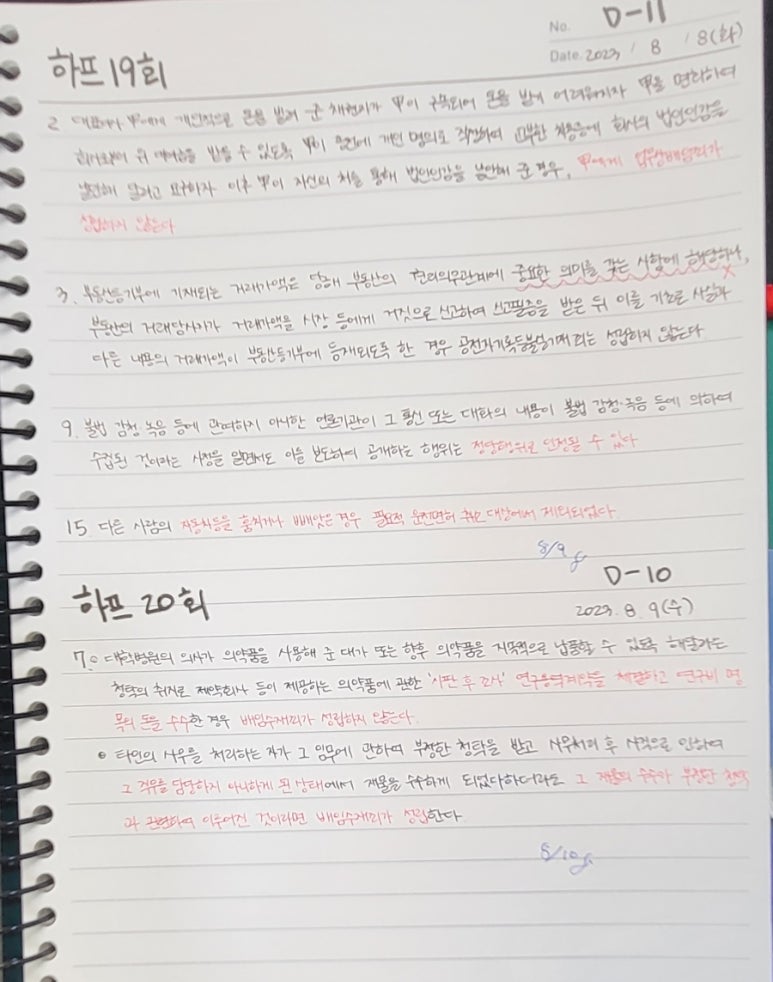 No. D-11
하프 19회
Date. 2023 / 8 / 8(화)
2. 대표이사 甲에게 개인적으로 돈을 빌려 준 채권자가 甲이 구속되어 돈을 받기 어려워지자 甲을 면회하여
회사로부터 위 대여금을 받을 수 있도록 甲이 종전에 개인 명의로 작성하여 교부한 차용증에 회사의 법인인감을
날인해 달라고 요구하자 이후 甲이 자신의 처를 통해 법인인감을 날인해 준 경우, 甲에게 업무상배임죄가
성립하지 않는다
3. 부동산등기부에 기재되는 거래가액은 당해 부동산의 권리의무관계에 중요한 의미를 갖는 사항에 해당하나,
부동산의 거래당사자가 거래가액을 시장 등에게 거짓으로 신고하여 신고필증을 받은 뒤 이를 기초로 사실과
다른 내용의 거래가액이 부동산등기부에 등재되도록 한 경우 공전자기록등불실기재죄는 성립하지 않는다
9. 불법 감청·녹음 등에 관여하지 아니한 언론기관이 그 통신 또는 대화의 내용이 불법 감청·녹음 등에 의하여
수집된 것이라는 사정을 알면서도 이를 보도하여 공개하는 행위는 정당행위로 인정될 수 있다
15. 다른 사람의 자동차등을 훔치거나 빼앗은 경우 필요적 운전면허 취소 대상에서 제외되었다.
8/9
D-10
하프 20회
2023. 8. 9(수)
7. ○ 대학병원의 의사가 의약품을 사용해 준 대가 또는 향후 의약품을 지속적으로 납품할 수 있도록 해달라는
청탁의 취지로 제약회사 등이 제공하는 의약품에 관한 '시판 후 조사' 연구용역계약을 체결하고 연구비 명
목의 돈을 수수한 경우 배임수재죄가 성립하지 않는다.
● 타인의 사무를 처리하는 자가 그 임무에 관하여 부정한 청탁을 받고 사무처리 후 사직으로 인하여
그 직무를 담당하지 아니하게 된 상태에서 재물을 수수하게 되었다하더라도 그 재물의 수수가 부정한 청탁
과 관련하여 이루어진 것이라면 배임수재죄가 성립한다.
8/10